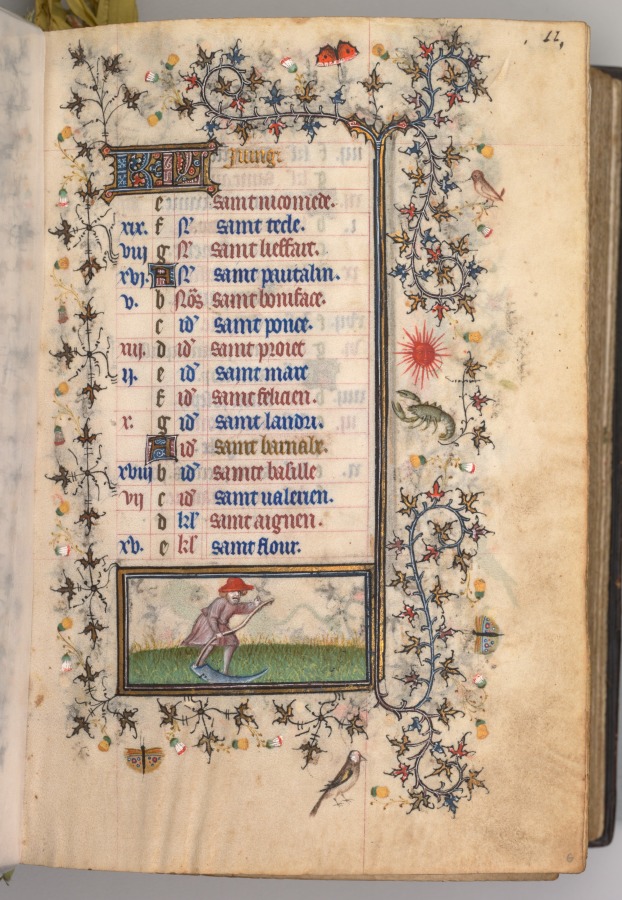 11,
KL Juing.
e saint nicomede.
xix. f N saint tecle.
viij g N saint lieffart.
xvj. A N saint pantalin.
v. b Nos saint boniface.
c id saint ponce.
xiij. d id saint proiet
ij. e id saint mart
f id saint felicien.
x. g id saint landri.
A id saint barnabe.
xviij b id sainte basille
vij c id saint valerien.
d kl saint aignen.
xv. e kl saint flour.
6